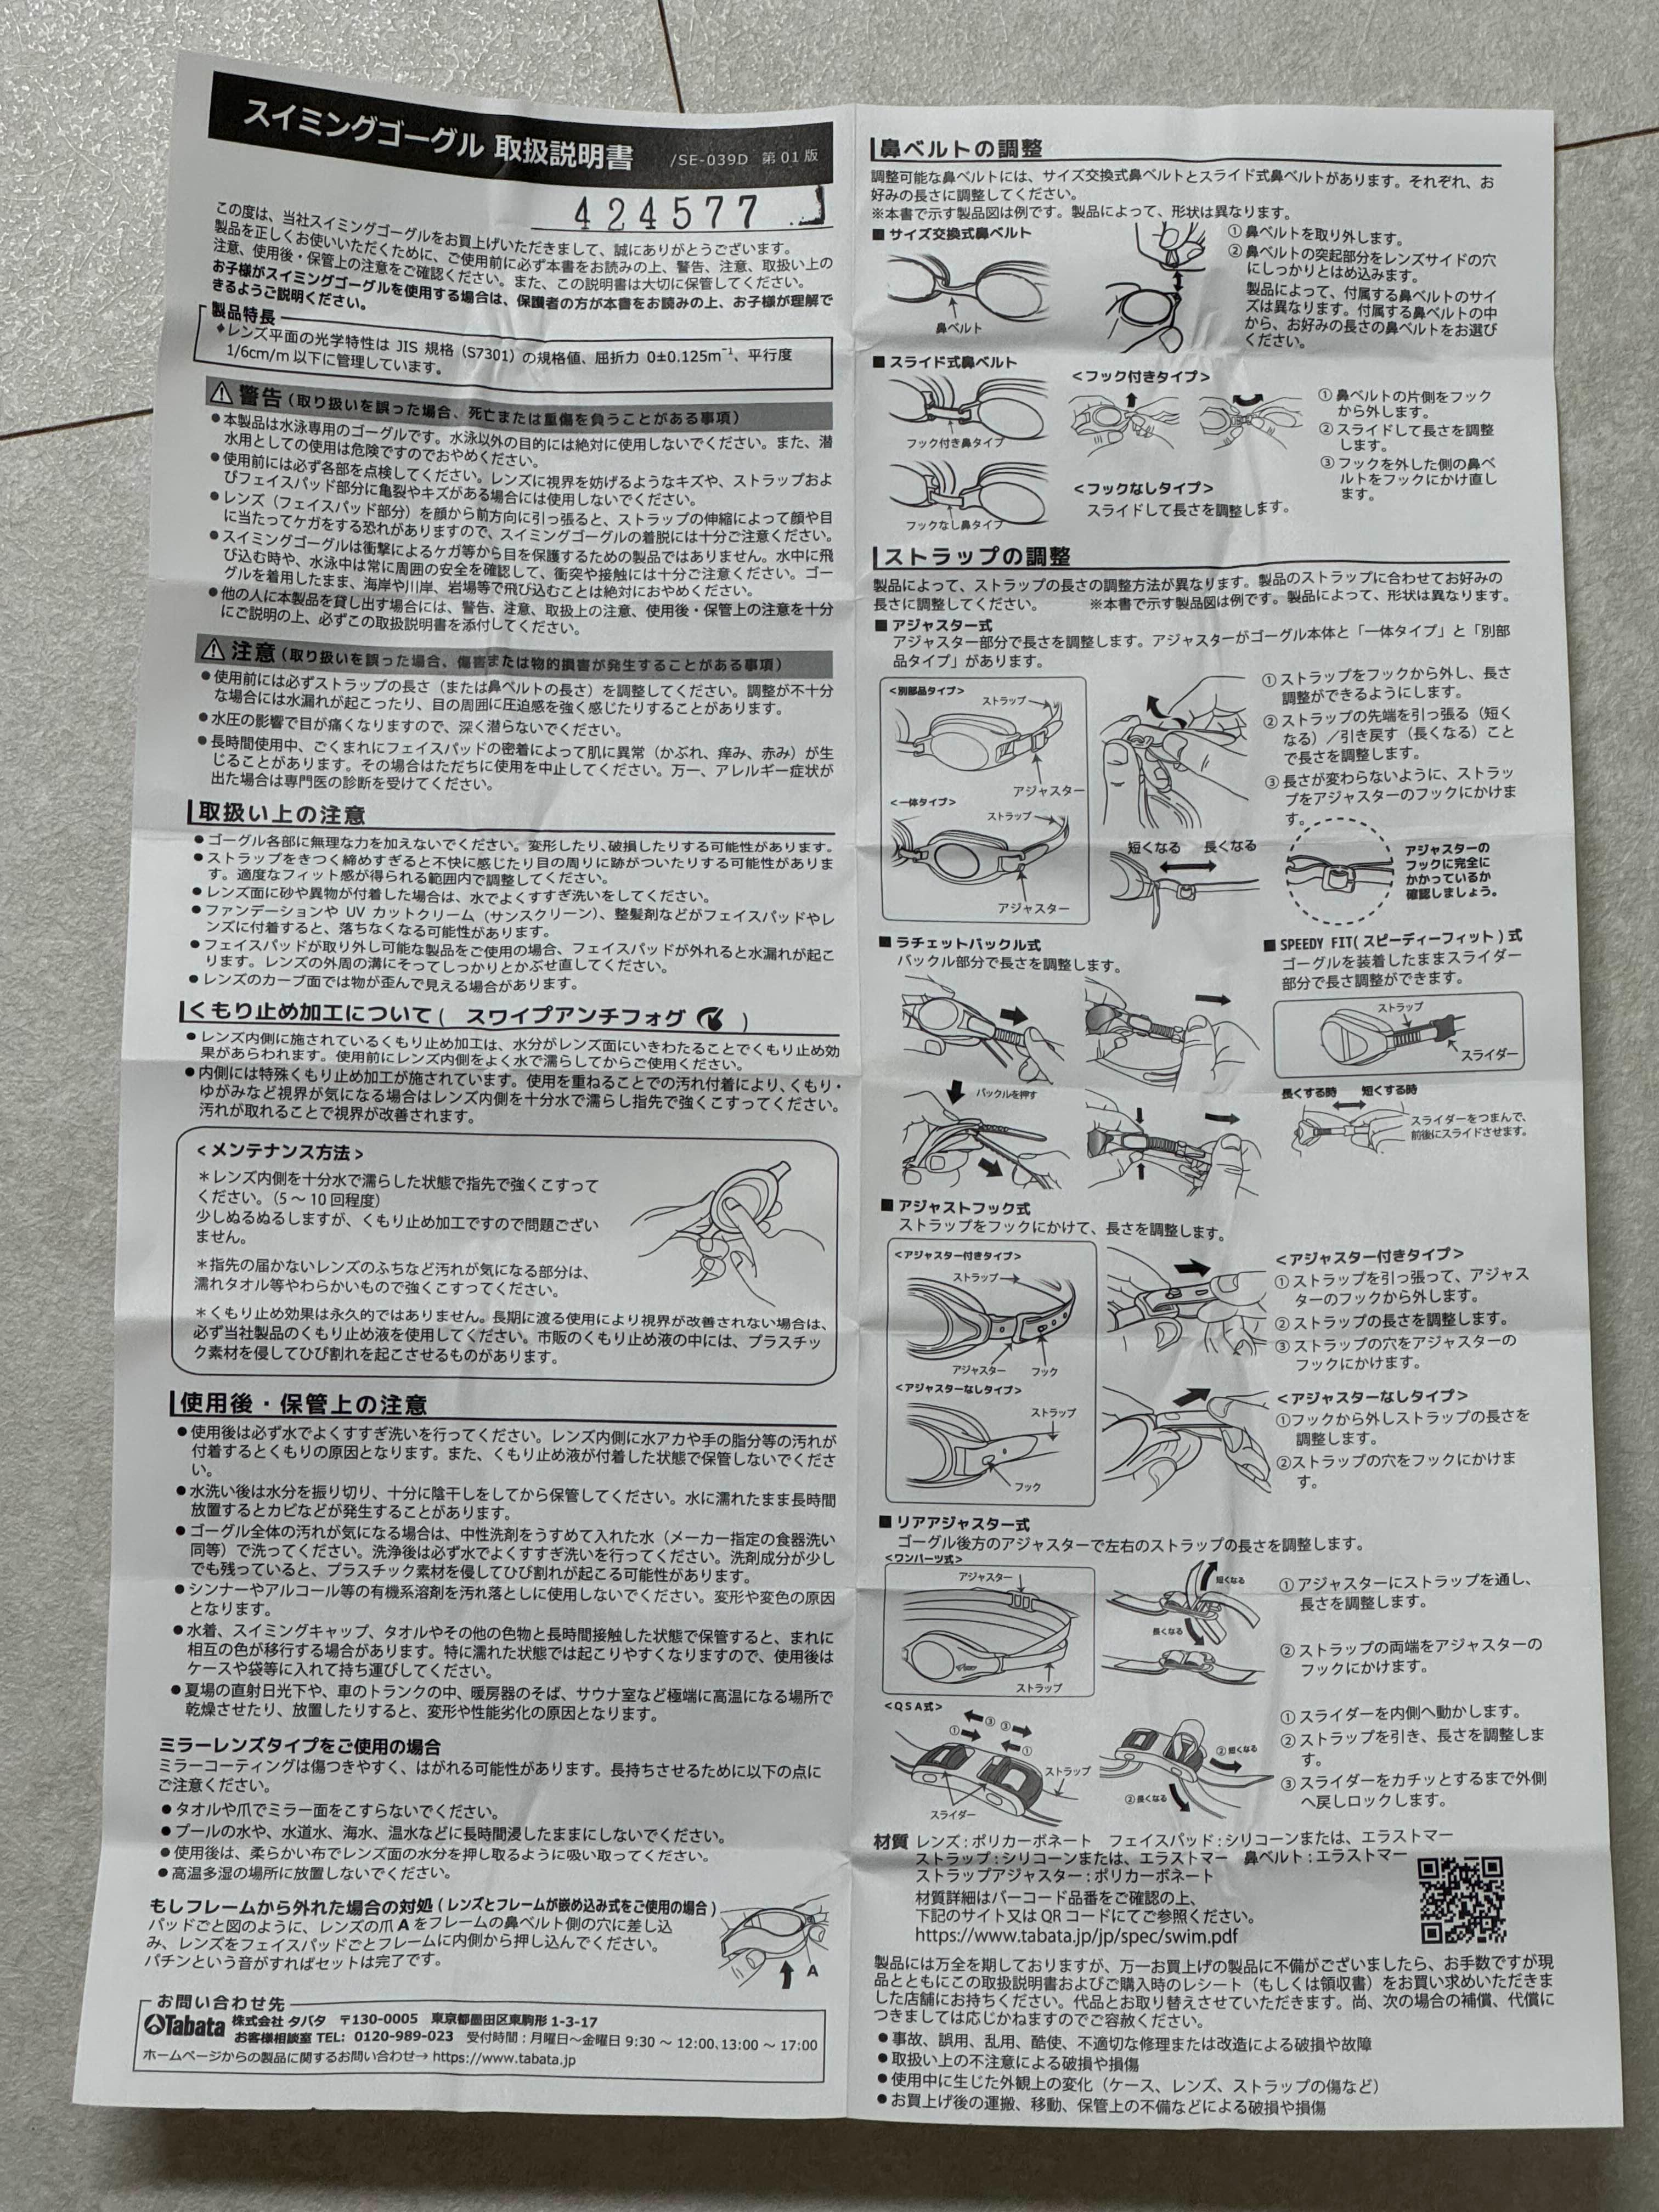 スイミングゴーグル 取扱説明書 /SE-039D 第01版
424577
この度は、当社スイミングゴーグルをお買上げいただきまして、誠にありがとうございます。
製品を正しくお使いいただくために、ご使用前に必ず本書をお読みの上、警告、注意、取扱い上の
注意、使用後・保管上の注意をご確認ください。また、この説明書は大切に保管してください。
お子様がスイミングゴーグルを使用する場合は、保護者の方が本書をお読みの上、お子様が理解で
きるようご説明ください。
製品特長
◆レンズ平面の光学特性は JIS 規格（S7301）の規格値、屈折力 0±0.125m⁻¹、平行度
1/6cm/m 以下に管理しています。
⚠ 警告（取り扱いを誤った場合、死亡または重傷を負うことがある事項）
●本製品は水泳専用のゴーグルです。水泳以外の目的には絶対に使用しないでください。また、潜
水用としての使用は危険ですのでおやめください。
●使用前には必ず各部を点検してください。レンズに視界を妨げるようなキズや、ストラップおよ
びフェイスパッド部分に亀裂やキズがある場合には使用しないでください。
●レンズ（フェイスパッド部分）を顔から前方向に引っ張ると、ストラップの伸縮によって顔や目
に当たってケガをする恐れがありますので、スイミングゴーグルの着脱には十分ご注意ください。
●スイミングゴーグルは衝撃によるケガ等から目を保護するための製品ではありません。水中に飛
び込む時や、水泳中は常に周囲の安全を確認して、衝突や接触には十分ご注意ください。ゴー
グルを着用したまま、海岸や川岸、岩場等で飛び込むことは絶対におやめください。
●他の人に本製品を貸し出す場合には、警告、注意、取扱上の注意、使用後・保管上の注意を十分
にご説明の上、必ずこの取扱説明書を添付してください。
⚠ 注意（取り扱いを誤った場合、傷害または物的損害が発生することがある事項）
●使用前には必ずストラップの長さ（または鼻ベルトの長さ）を調整してください。調整が不十分
な場合には水漏れが起こったり、目の周囲に圧迫感を強く感じたりすることがあります。
●水圧の影響で目が痛くなりますので、深く潜らないでください。
●長時間使用中、ごくまれにフェイスパッドの密着によって肌に異常（かぶれ、痒み、赤み）が生
じることがあります。その場合はただちに使用を中止してください。万一、アレルギー症状が
出た場合は専門医の診断を受けてください。
取扱い上の注意
●ゴーグル各部に無理な力を加えないでください。変形したり、破損したりする可能性があります。
●ストラップをきつく締めすぎると不快に感じたり目の周りに跡がついたりする可能性がありま
す。適度なフィット感が得られる範囲内で調整してください。
●レンズ面に砂や異物が付着した場合は、水でよくすすぎ洗いをしてください。
●ファンデーションや UV カットクリーム（サンスクリーン）、整髪剤などがフェイスパッドやレ
ンズに付着すると、落ちなくなる可能性があります。
●フェイスパッドが取り外し可能な製品をご使用の場合、フェイスパッドが外れると水漏れが起こ
ります。レンズの外周の溝にそってしっかりとかぶせ直してください。
●レンズのカーブ面では物が歪んで見える場合があります。
くもり止め加工について（ スワイプアンチフォグ ）
●レンズ内側に施されているくもり止め加工は、水分がレンズ面にいきわたることでくもり止め効
果があらわれます。使用前にレンズ内側をよく水で濡らしてからご使用ください。
●内側には特殊くもり止め加工が施されています。使用を重ねることでの汚れ付着により、くもり・
ゆがみなど視界が気になる場合はレンズ内側を十分水で濡らし指先で強くこすってください。
汚れが取れることで視界が改善されます。
＜メンテナンス方法＞
＊レンズ内側を十分水で濡らした状態で指先で強くこすって
ください。（5～10回程度）
少しぬるぬるしますが、くもり止め加工ですので問題ござい
ません。
＊指先の届かないレンズのふちなど汚れが気になる部分は、
濡れタオル等やわらかいもので強くこすってください。
＊くもり止め効果は永久的ではありません。長期に渡る使用により視界が改善されない場合は、
必ず当社製品のくもり止め液を使用してください。市販のくもり止め液の中には、プラスチッ
ク素材を侵してひび割れを起こさせるものがあります。
使用後・保管上の注意
●使用後は必ず水でよくすすぎ洗いを行ってください。レンズ内側に水アカや手の脂分等の汚れが
付着するとくもりの原因となります。また、くもり止め液が付着した状態で保管しないでくださ
い。
●水洗い後は水分を振り切り、十分に陰干しをしてから保管してください。水に濡れたまま長時間
放置するとカビなどが発生することがあります。
●ゴーグル全体の汚れが気になる場合は、中性洗剤をうすめて入れた水（メーカー指定の食器洗い
同等）で洗ってください。洗浄後は必ず水でよくすすぎ洗いを行ってください。洗剤成分が少し
でも残っていると、プラスチック素材を侵してひび割れが起こる可能性があります。
●シンナーやアルコール等の有機系溶剤を汚れ落としに使用しないでください。変形や変色の原因
となります。
●水着、スイミングキャップ、タオルやその他の色物と長時間接触した状態で保管すると、まれに
相互の色が移行する場合があります。特に濡れた状態では起こりやすくなりますので、使用後は
ケースや袋等に入れて持ち運びしてください。
●夏場の直射日光下や、車のトランクの中、暖房器のそば、サウナ室など極端に高温になる場所で
乾燥させたり、放置したりすると、変形や性能劣化の原因となります。
ミラーレンズタイプをご使用の場合
ミラーコーティングは傷つきやすく、はがれる可能性があります。長持ちさせるために以下の点に
ご注意ください。
●タオルや爪でミラー面をこすらないでください。
●プールの水や、水道水、海水、温水などに長時間浸したままにしないでください。
●使用後は、柔らかい布でレンズ面の水分を押し取るように吸い取ってください。
●高温多湿の場所に放置しないでください。
もしフレームから外れた場合の対処（レンズとフレームが嵌め込み式をご使用の場合）
パッドごと図のように、レンズの爪 A をフレームの鼻ベルト側の穴に差し込
み、レンズをフェイスパッドごとフレームに内側から押し込んでください。
パチンという音がすればセットは完了です。
A
お問い合わせ先
Tabata 株式会社 タバタ 〒130-0005 東京都墨田区東駒形 1-3-17
お客様相談室 TEL: 0120-989-023 受付時間：月曜日～金曜日 9:30 ～ 12:00、13:00 ～ 17:00
ホームページからの製品に関するお問い合わせ→ https://www.tabata.jp
鼻ベルトの調整
調整可能な鼻ベルトには、サイズ交換式鼻ベルトとスライド式鼻ベルトがあります。それぞれ、お
好みの長さに調整してください。
※本書で示す製品図は例です。製品によって、形状は異なります。
■ サイズ交換式鼻ベルト
鼻ベルト
① 鼻ベルトを取り外します。
② 鼻ベルトの突起部分をレンズサイドの穴
にしっかりとはめ込みます。
製品によって、付属する鼻ベルトのサイ
ズは異なります。付属する鼻ベルトの中
から、お好みの長さの鼻ベルトをお選び
ください。
■ スライド式鼻ベルト
フック付き鼻タイプ
フックなし鼻タイプ
＜フック付きタイプ＞
① 鼻ベルトの片側をフック
から外します。
② スライドして長さを調整
します。
③ フックを外した側の鼻ベ
ルトをフックにかけ直し
ます。
＜フックなしタイプ＞
スライドして長さを調整します。
ストラップの調整
製品によって、ストラップの長さの調整方法が異なります。製品のストラップに合わせてお好みの
長さに調整してください。 ※本書で示す製品図は例です。製品によって、形状は異なります。
■ アジャスター式
アジャスター部分で長さを調整します。アジャスターがゴーグル本体と「一体タイプ」と「別部
品タイプ」があります。
＜別部品タイプ＞
ストラップ
アジャスター
＜一体タイプ＞
ストラップ
アジャスター
① ストラップをフックから外し、長さ
調整ができるようにします。
② ストラップの先端を引っ張る（短く
なる）／引き戻す（長くなる）こと
で長さを調整します。
③ 長さが変わらないように、ストラッ
プをアジャスターのフックにかけま
す。
短くなる 長くなる
アジャスターの
フックに完全に
かかっているか
確認しましょう。
■ ラチェットバックル式
バックル部分で長さを調整します。
バックルを押す
■ SPEEDY FIT(スピーディーフィット)式
ゴーグルを装着したままスライダー
部分で長さ調整ができます。
ストラップ
スライダー
長くする時 短くする時
スライダーをつまんで、
前後にスライドさせます。
■ アジャストフック式
ストラップをフックにかけて、長さを調整します。
＜アジャスター付きタイプ＞
ストラップ
アジャスター フック
＜アジャスターなしタイプ＞
ストラップ
フック
＜アジャスター付きタイプ＞
① ストラップを引っ張って、アジャス
ターのフックから外します。
② ストラップの長さを調整します。
③ ストラップの穴をアジャスターの
フックにかけます。
＜アジャスターなしタイプ＞
①フックから外しストラップの長さを
調整します。
②ストラップの穴をフックにかけま
す。
■ リアアジャスター式
ゴーグル後方のアジャスターで左右のストラップの長さを調整します。
＜ワンパーツ式＞
アジャスター
ストラップ
短くなる
長くなる
① アジャスターにストラップを通し、
長さを調整します。
② ストラップの両端をアジャスターの
フックにかけます。
＜QSA式＞
① ③ ③ ①
ストラップ
スライダー
② 短くなる
② 長くなる
① スライダーを内側へ動かします。
② ストラップを引き、長さを調整しま
す。
③ スライダーをカチッとするまで外側
へ戻しロックします。
材質 レンズ：ポリカーボネート フェイスパッド：シリコーンまたは、エラストマー
ストラップ：シリコーンまたは、エラストマー 鼻ベルト：エラストマー
ストラップアジャスター：ポリカーボネート
材質詳細はバーコード品番をご確認の上、
下記のサイト又は QR コードにてご参照ください。
https://www.tabata.jp/jp/spec/swim.pdf
製品には万全を期しておりますが、万一お買上げの製品に不備がございましたら、お手数ですが現
品とともにこの取扱説明書およびご購入時のレシート（もしくは領収書）をお買い求めいただきま
した店舗にお持ちください。代品とお取り替えさせていただきます。尚、次の場合の補償、代償に
つきましては応じかねますのでご容赦ください。
●事故、誤用、乱用、酷使、不適切な修理または改造による破損や故障
●取扱い上の不注意による破損や損傷
●使用中に生じた外観上の変化（ケース、レンズ、ストラップの傷など）
●お買上げ後の運搬、移動、保管上の不備などによる破損や損傷